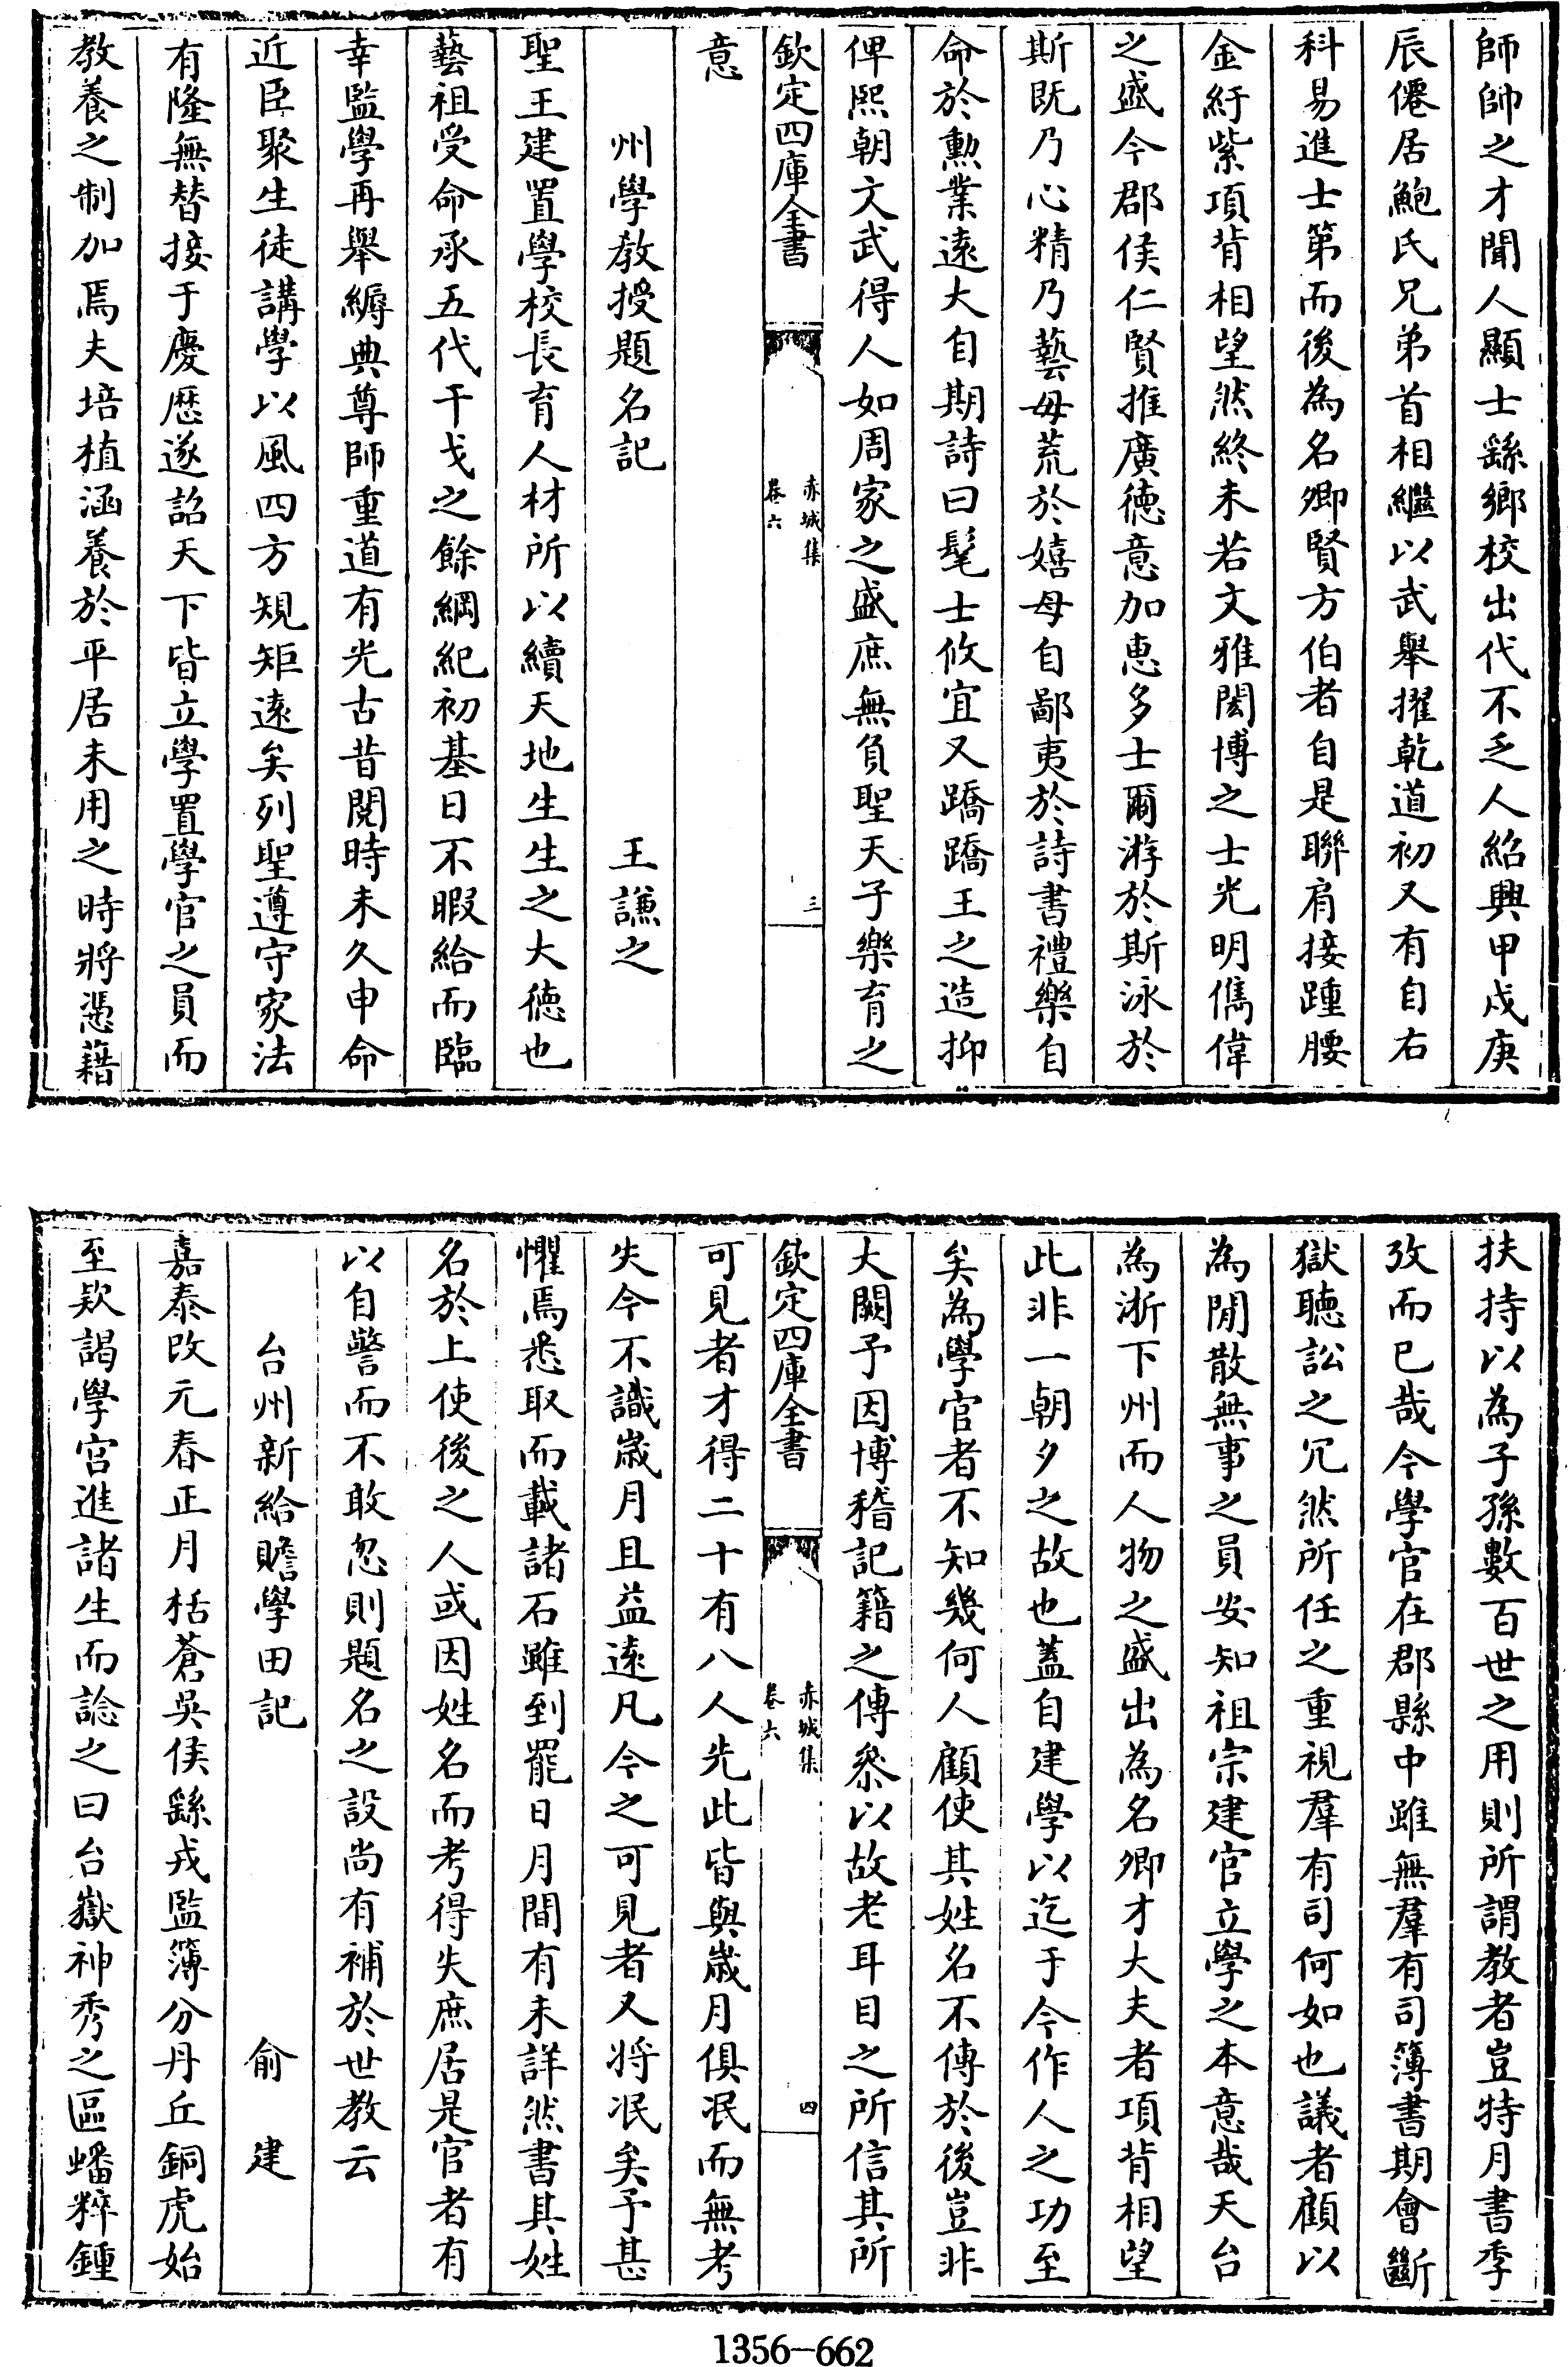 師帥之才聞人顯士繇鄉校出代不乏人紹興甲戌庚
辰僊居鮑氏兄弟首相繼以武舉擢乾道初又有自右
科易進士第而後為名卿賢方伯者自是聯肩接踵腰
金紆紫項背相望然終未若文雅閎博之士光明儁偉
之盛今郡侯仁賢推廣德意加惠多士爾游於斯泳於
斯既乃心精乃藝毋荒於嬉毋自鄙夷於詩書禮樂自
命於勲業遠大自期詩曰髦士攸宜又蹻蹻王之造抑
俾熙朝文武得人如周家之盛庶無負聖天子樂育之
欽定四庫全書
赤城集
卷六
三
意
州學教授題名記
王謙之
聖王建置學校長育人材所以續天地生生之大德也
藝祖受命承五代干戈之餘綱紀初基日不暇給而臨
幸監學再舉縟典尊師重道有光古昔閱時未久申命
近臣聚生徒講學以風四方規矩遠矣列聖遵守家法
有隆無替接于慶歷遂詔天下皆立學置學官之員而
教養之制加焉夫培植涵養於平居未用之時將憑藉
扶持以為子孫數百世之用則所謂教者豈特月書季
攷而已哉今學官在郡縣中雖無羣有司簿書期會斷
獄聽訟之冗然所任之重視羣有司何如也議者顧以
為閒散無事之員安知祖宗建官立學之本意哉天台
為浙下州而人物之盛出為名卿才大夫者項背相望
此非一朝夕之故也蓋自建學以迄于今作人之功至
矣為學官者不知幾何人顧使其姓名不傳於後豈非
大闕予因博稽記籍之傳叅以故老耳目之所信其所
欽定四庫全書
赤城集
卷六
四
可見者才得二十有八人先此皆與歲月俱泯而無考
失今不識歲月且益遠凡今之可見者又將泯矣予甚
懼焉悉取而載諸石雖到罷日月間有未詳然書其姓
名於上使後之人或因姓名而考得失庶居是官者有
以自警而不敢忽則題名之設尚有補於世教云
台州新給贍學田記
俞建
嘉泰改元春正月栝蒼吳侯繇戎監簿分丹丘銅虎始
至欵謁學宫進諸生而諗之曰台嶽神秀之區蟠粹鍾
1356-662